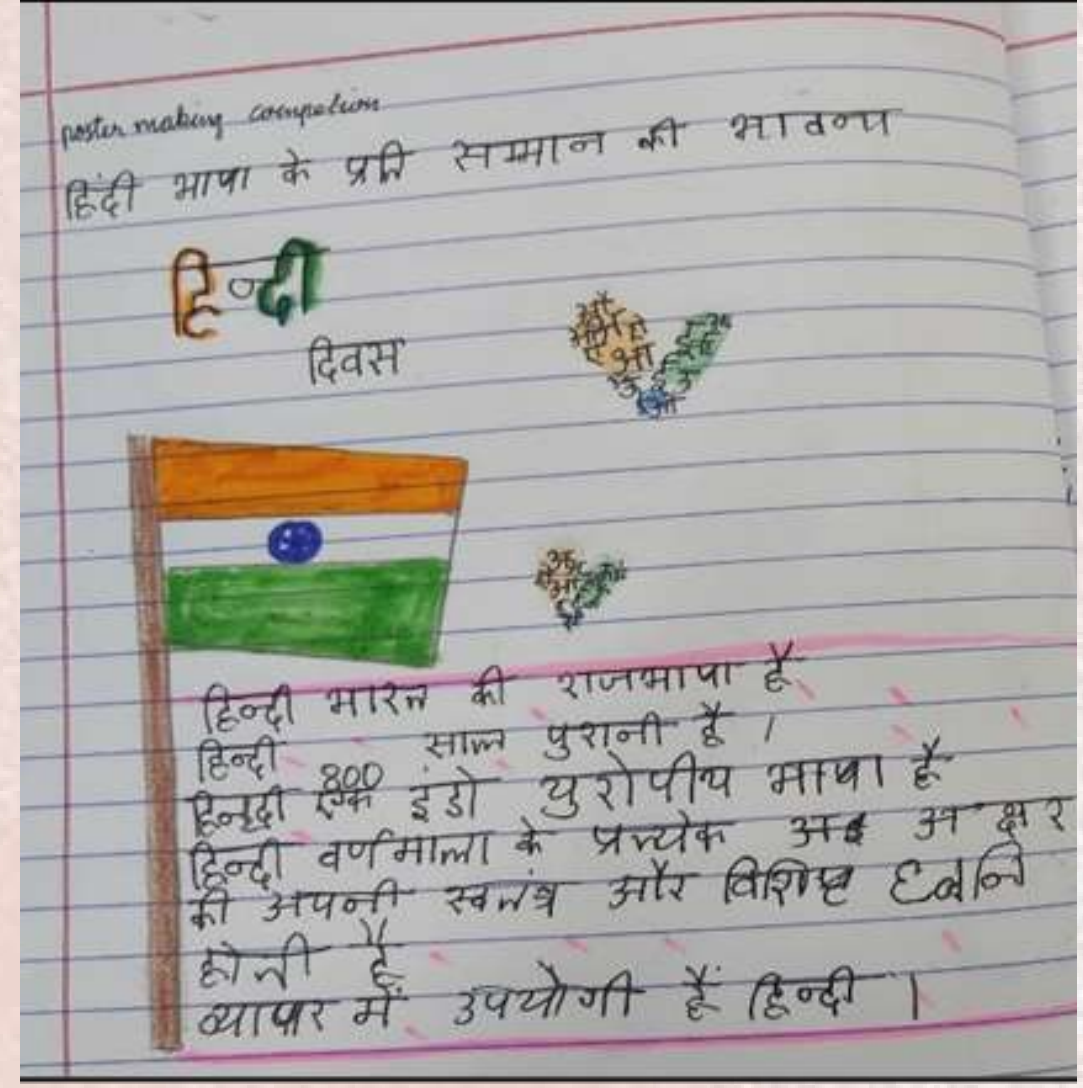 poster making competion
हिंदी भाषा के प्रति सम्मान की भावना
हिन्दी
दिवस
हिन्दी भारत की राजभाषा है
हिन्दी 800 साल पुरानी है ।
हिनदी एक इंडो युरोपीय भाषा है
हिन्दी वर्णमाला के प्रत्येक अक्षर
की अपनी स्वतंत्र और विशिष्ट ध्वनि
होती है
व्यापार में उपयोगी हैं हिन्दी ।